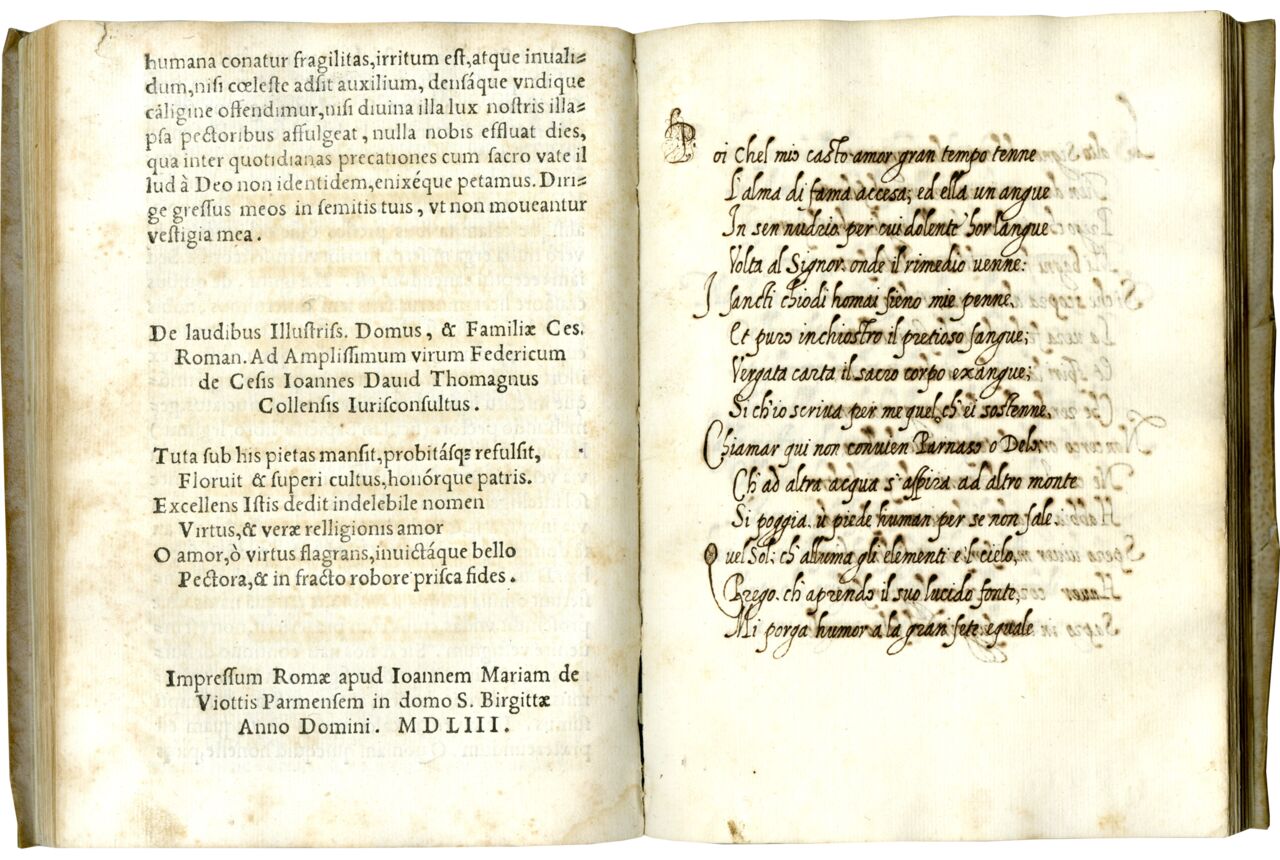 humana conatur fragilitas,irritum est,atque inuali⸗
dum,nisi cœleste adsit auxilium, densáque vndique
cáligine offendimur,nisi diuina illa lux nostris illa⸗
psa pectoribus affulgeat, nulla nobis effluat dies,
qua inter quotidianas precationes cum sacro vate il
lud à Deo non identidem,enixéque petamus. Diri⸗
ge gressus meos in semitis tuis, vt non moueantur
vestigia mea.
De laudibus Illustriss. Domus, & Familiæ Ces.
Roman. Ad Amplissimum virum Federicum
de Cesis Ioannes Dauid Thomagnus
Collensis Iurisconsultus.
Tuta sub his pietas mansit,probitásqꝫ refulsit,
Floruit & superi cultus,honórque patris.
Excellens Istis dedit indelebile nomen
Virtus,& veræ relligionis amor
O amor,ò virtus flagrans,inuictáque bello
Pectora,& in fracto robore prisca fides.
Impressum Romæ apud Ioannem Mariam de
Viottis Parmensem in domo S. Birgittæ
Anno Domini. MDLIII.
Poi Chel mio casto amor gran tempo tenne
L'alma di fama accesa; ed ella un angue
In sen nudrio per cui dolente hor langue
Volta al Signor. onde il rimedio venne:
I sancti chiodi homai sieno mie penne.
Et puro inchiostro il pretioso sangue;
Vergata carta il sacro corpo exangue;
Si ch'io scriua per me quel ch'ei sostenne.
Chiamar qui non convien Parnaso o Delo:
Ch'ad altra acqua s'aspira ad altro monte
Si poggia. ù piede human per se non sale:
Quel Sol; ch'alluma gli elementi e 'l cielo,
Prego. ch'aprendo il suo lucido fonte,
Mi porga humor a la gran sete eguale